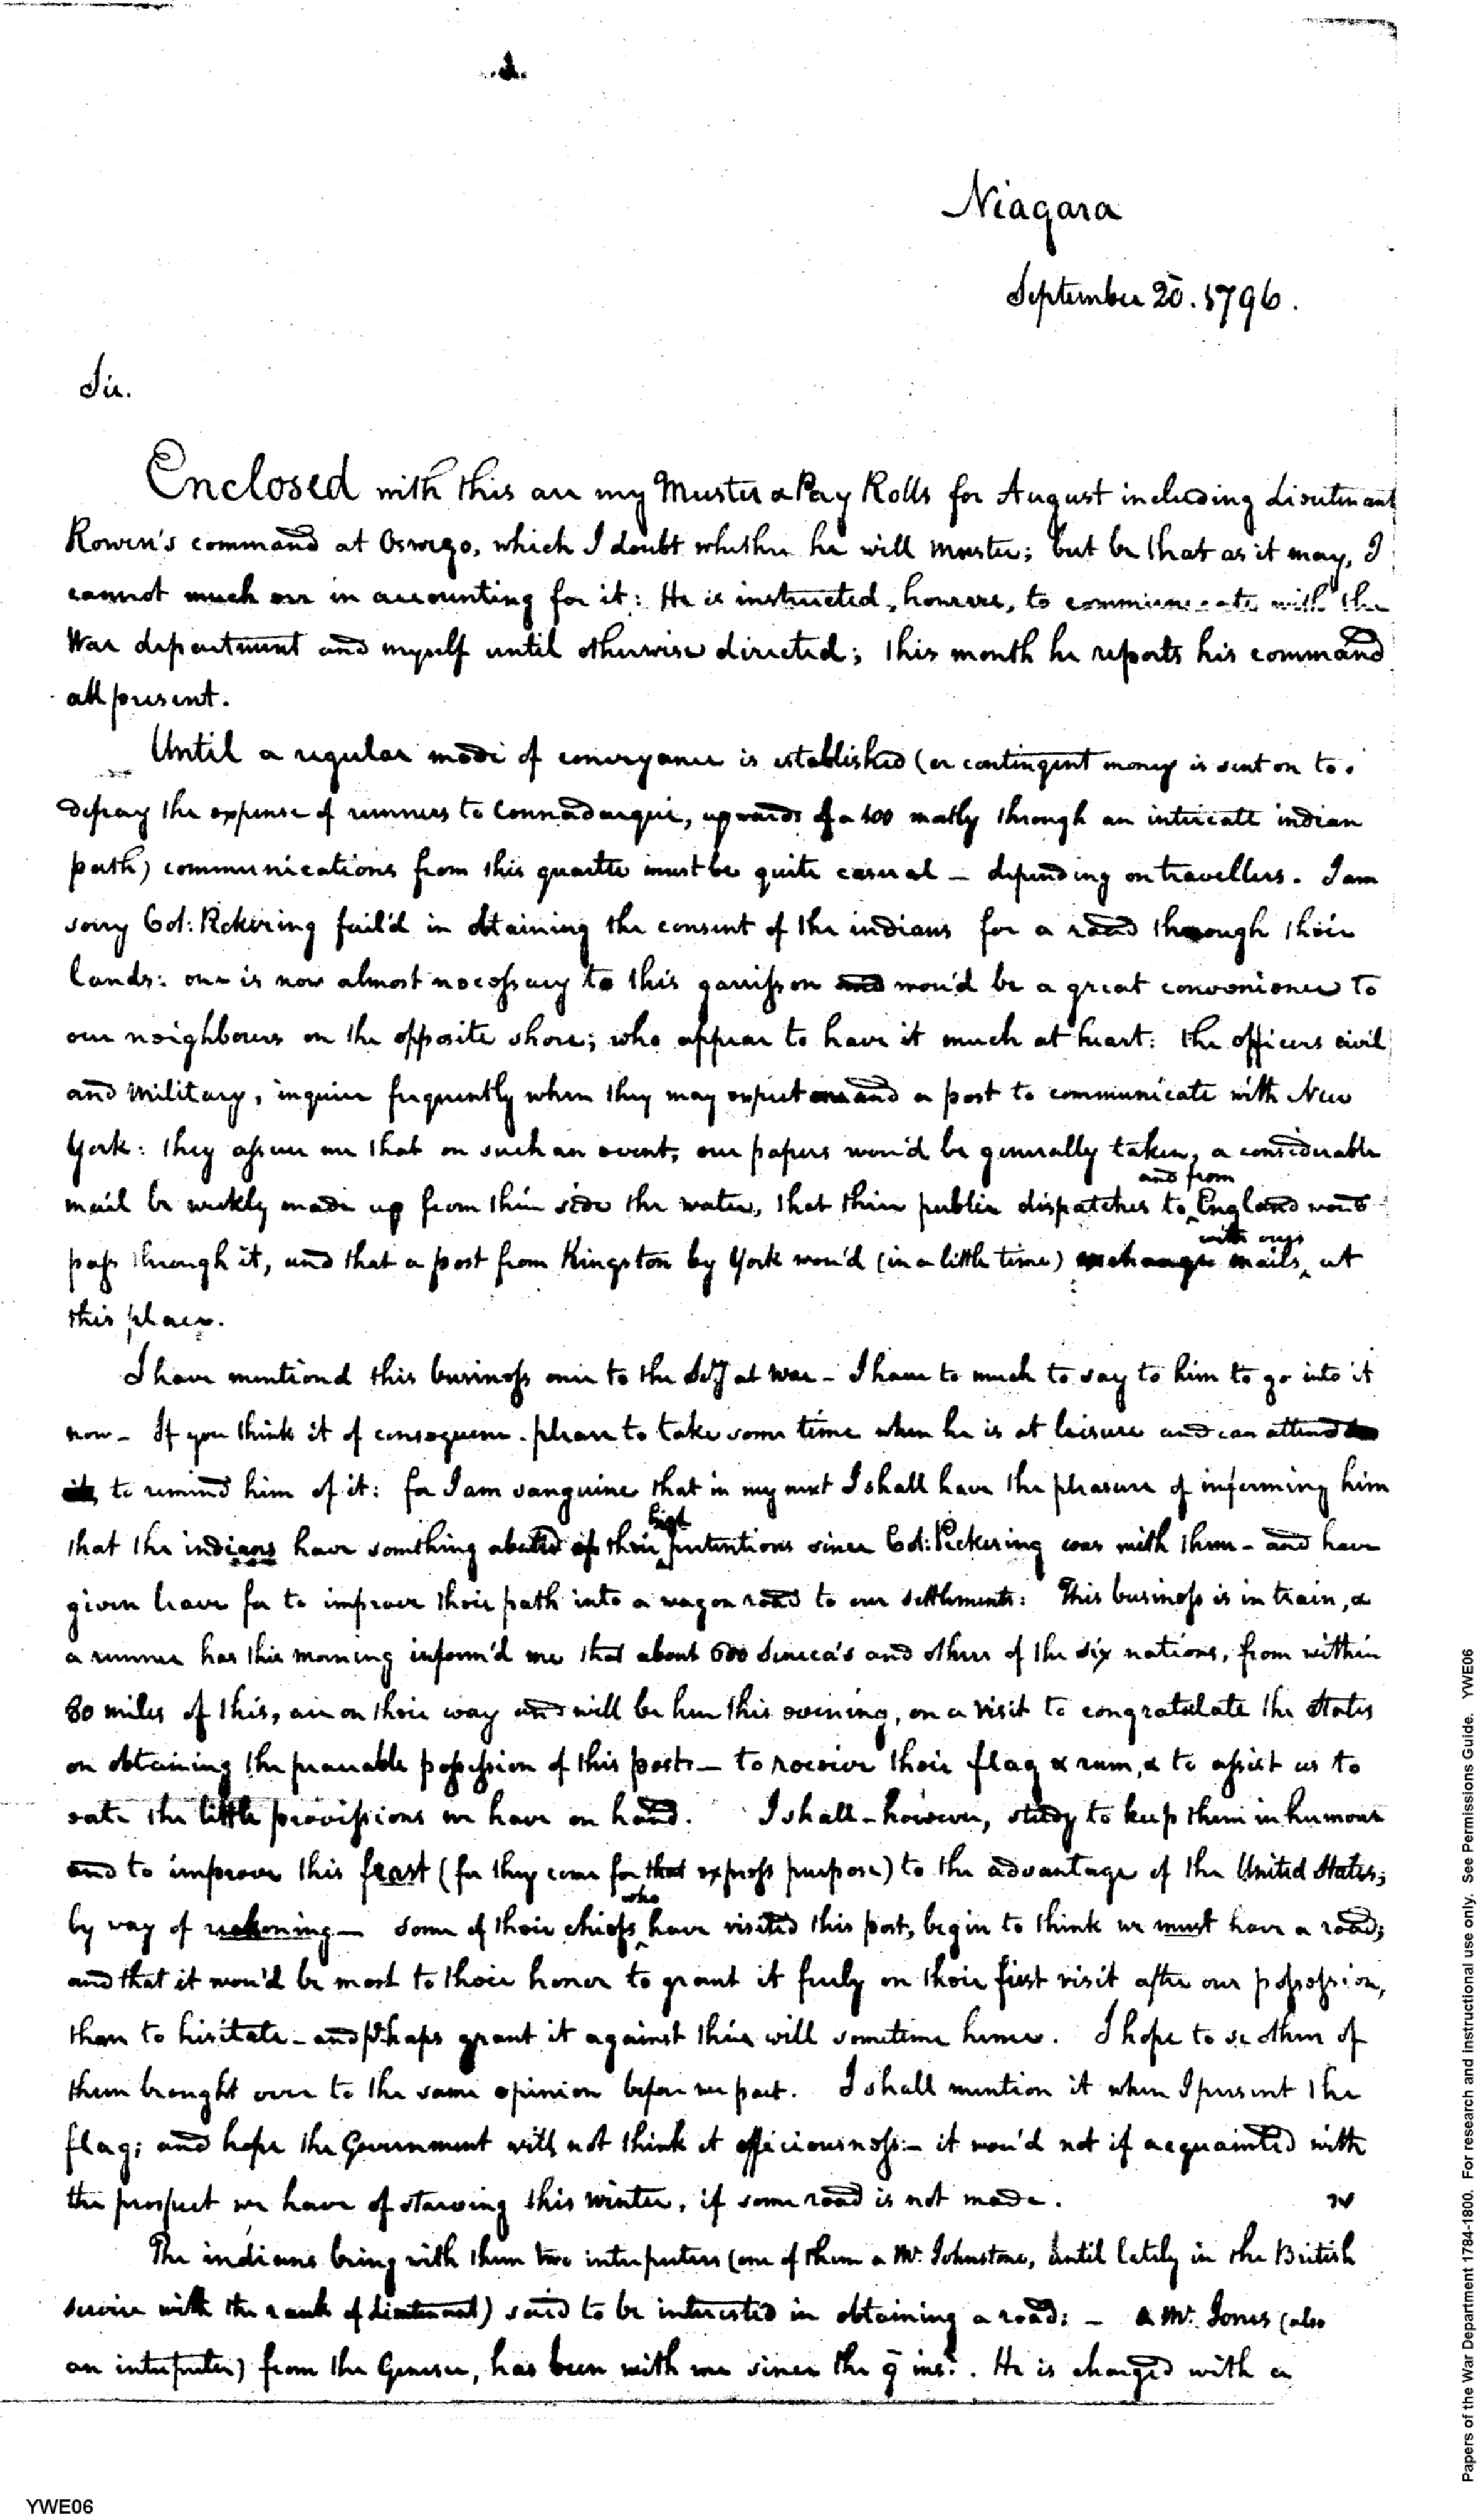 Niagara
September 20. 1796.
Sir.
Enclosed with this are my Muster & Pay Rolls for August including Lieutenant
Rowen's command at Oswego, which I doubt whether he will muster; but be that as it may, I
cannot much err in accounting for it: He is instructed, however, to communicate with the
War department and myself until otherwise directed; this month he reports his command
all present.
Until a regular mode of conveyance is established (or contingent money is sent on to
defray the expense of runners to Connadarquie, upwards of a 100 mostly through an intricate indian
path) communications from this quarter must be quite casual – depending on travellers. I am
sorry Col: Pickering fail'd in obtaining the consent of the indians for a road through their
lands: one is now almost necessary to this garrisson and wou'd be a great convenience to
our neighbours on the opposite shore; who appear to have it much at heart: the officers civil
and military, inquire frequently when they may expect and a post to communicate with New
York: they assure me that on such an event, our papers wou'd be generally taken, a considerable
mail be weekly made up from their side the water, that their public dispatches to and from England wou'd
pass through it, and that a post from Kingston by York wou'd (in a little time) exchange mails with ours at
this place.
I have mentiond this business once to the Secy at War – I have to much to say to him to go into it
now – If you think it of consequence please to take some time when he is at leisure and can attend to
it, to remind him of it: for I am sanguine that in my next I shall have the pleasure of informing him
that the indians have something abated of their high pretentions since Col: Pickering was with them – and have
given leave for to improve their path into a wagon road to our settlements: This business is in train, &
a runner has this morning inform'd me that about 600 Seneca's and others of the six nations, from within
80 miles of this, are on their way and will be here this evening, on a visit to congratulate the States
on obtaining the peaceable possession of this post – to receive their flag & rum, & to assist us to
eate the little provissions we have on hand. I shall – however, study to keep them in humour
and to improve this feast (for they come for that express purpose) to the advantage of the United States;
by way of reckoning – some of their chiefs who have visited this post, begin to think we must have a road;
and that it wou'd be most to their honor to grant it freely on their first visit after our possession,
than to hesitate – and p'rhaps grant it against their will sometime hence. I hope to se others of
them brought over to the same opinion before we part. I shall mention it when I present the
flag; and hope the Government will not think it officiousness: – it wou'd not if acquainted with
the prospect we have of starving this winter, if some road is not made.
The indians bring with them two interpreters (one of them a Mr. Johnstone, until lately in the British
service with the rank of Lieutenant) said to be interested in obtaining a road: – A Mr. Jones (also
an interpreter) from the Genesee, has been with me since the 9 inst. He is charged with a
YWE06
Papers of the War Department 1784-1800. For research and instructional use only. See Permissions Guide. YWE06